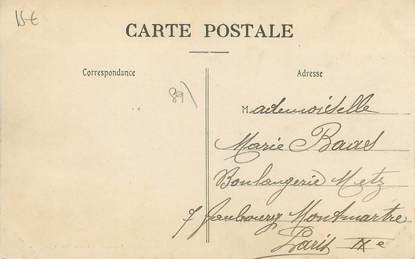 15€
CARTE POSTALE
Correspondance
Adresse
89)
Mademoiselle
Marie Baas
Boulangerie Metz
7 Faubourg Montmartre
Paris IXe